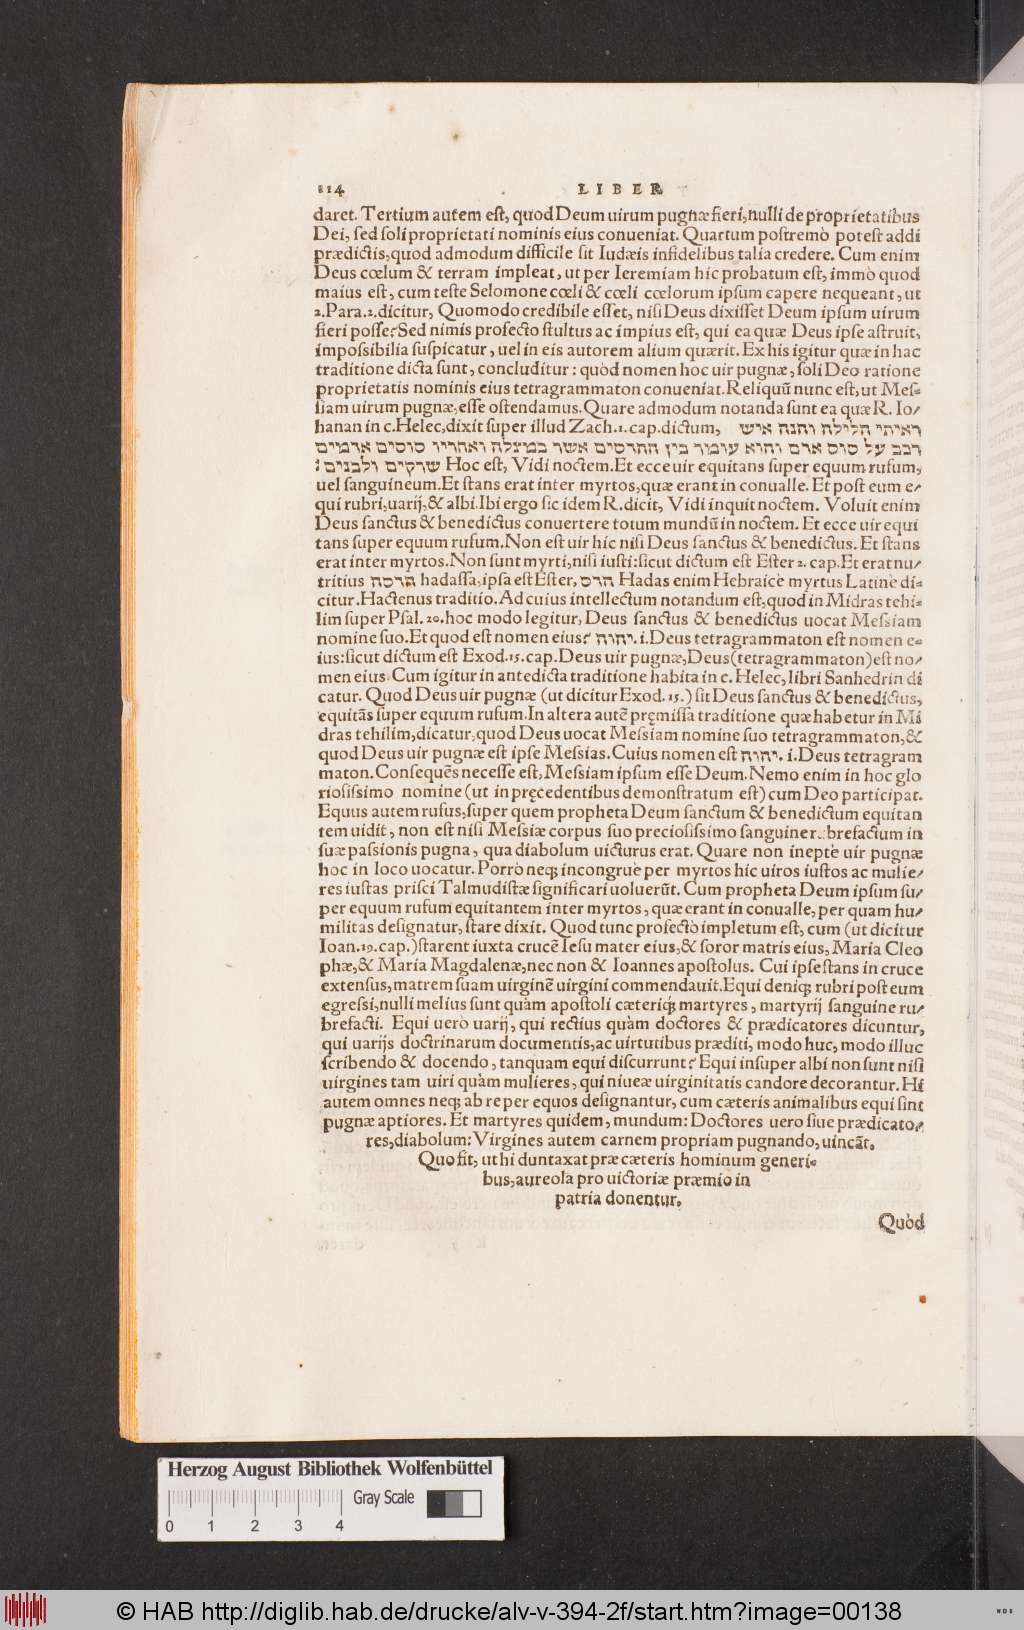 114 LIBER
daret. Tertium autem est, quod Deum uirum pugnæ fieri, nulli de proprietatibus
Dei, sed soli proprietati nominis eius conueniat. Quartum postremò potest addi
prædictis, quod admodum difficile sit Iudæis infidelibus talia credere. Cum enim
Deus cœlum & terram impleat, ut per Ieremiam hic probatum est, immò quod
maius est, cum teste Selomone cœli & cœli cœlorum ipsum capere nequeant, ut
2. Para. 2. dicitur, Quomodo credibile esset, nisi Deus dixisset Deum ipsum uirum
fieri posse? Sed nimis profecto stultus ac impius est, qui ea quæ Deus ipse astruit,
impossibilia suspicatur, uel in eis autorem alium quærit. Ex his igitur quæ in hac
traditione dicta sunt, concluditur: quòd nomen hoc uir pugnæ, soli Deo ratione
proprietatis nominis eius tetragrammaton conueniat. Reliquũ nunc est, ut Mes-
siam uirum pugnæ, esse ostendamus. Quare admodum notanda sunt ea quæ R. Io-
hanan in c. Helec, dixit super illud Zach. 1. cap. dictum, ראיתי הלילה והנה איש
רכב על סוס ארם והוא עומר בין החרסים אשר במצלה ואחריו סוסים ארמים
שרקים ולבנים: Hoc est, Vidi noctem. Et ecce uir equitans super equum rufum,
uel sanguineum. Et stans erat inter myrtos, quæ erant in conualle. Et post eum e-
qui rubri, uarij, & albi. Ibi ergo sic idem R. dicit, Vidi inquit noctem. Voluit enim
Deus sanctus & benedictus conuertere totum mundũ in noctem. Et ecce uir equi
tans super equum rufum. Non est uir hic nisi Deus sanctus & benedictus. Et stans
erat inter myrtos. Non sunt myrti, nisi iusti: sicut dictum est Ester 2. cap. Et erat nu-
tritius הרסה hadassa, ipsa est Ester, הרס Hadas enim Hebraicè myrtus Latinè di-
citur. Hactenus traditio. Ad cuius intellectum notandum est, quod in Midras tehi-
lim super Psal. 20. hoc modo legitur, Deus sanctus & benedictus uocat Messiam
nomine suo. Et quod est nomen eius? יהוה. i. Deus tetragrammaton est nomen e-
ius: sicut dictum est Exod. 15. cap. Deus uir pugnæ, Deus (tetragrammaton) est no-
men eius. Cum igitur in antedicta traditione habita in c. Helec, libri Sanhedrin di
catur. Quod Deus uir pugnæ (ut dicitur Exod. 15.) sit Deus sanctus & benedictus,
equitãs super equum rufum. In altera autẽ pręmissa traditione quæ habetur in Mi
dras tehilim, dicatur, quod Deus uocat Messiam nomine suo tetragrammaton, &
quod Deus uir pugnæ est ipse Messias. Cuius nomen est יהוה. i. Deus tetragram
maton. Consequẽs necesse est, Messiam ipsum esse Deum. Nemo enim in hoc glo
riosissimo nomine (ut in pręcedentibus demonstratum est) cum Deo participat.
Equus autem rufus, super quem propheta Deum sanctum & benedictum equitan
tem uidit, non est nisi Messiæ corpus suo preciosissimo sanguine rubrefactum in
suæ passionis pugna, qua diabolum uicturus erat. Quare non ineptè uir pugnæ
hoc in loco uocatur. Porrò neq; incongruè per myrtos hic uiros iustos ac mulie-
res iustas prisci Talmudistæ significari uoluerũt. Cum propheta Deum ipsum su-
per equum rufum equitantem inter myrtos, quæ erant in conualle, per quam hu-
militas designatur, stare dixit. Quod tunc profectò impletum est, cum (ut dicitur
Ioan. 19. cap.) starent iuxta crucẽ Iesu mater eius, & soror matris eius, Maria Cleo
phæ, & Maria Magdalenæ, nec non & Ioannes apostolus. Cui ipse stans in cruce
extensus, matrem suam uirginẽ uirgini commendauit. Equi deniq; rubri post eum
egressi, nulli melius sunt quàm apostoli cæteriq; martyres, martyrij sanguine ru-
brefacti. Equi uerò uarij, qui rectius quàm doctores & prædicatores dicuntur,
qui uarijs doctrinarum documentis, ac uirtutibus præditi, modo huc, modo illuc
scribendo & docendo, tanquam equi discurrunt? Equi insuper albi non sunt nisi
uirgines tam uiri quàm mulieres, qui niueæ uirginitatis candore decorantur. Hi
autem omnes neq; ab re per equos designantur, cum cæteris animalibus equi sint
pugnæ aptiores. Et martyres quidem, mundum: Doctores uero siue prædicato-
res, diabolum: Virgines autem carnem propriam pugnando, uincãt.
Quo fit, ut hi duntaxat præ cæteris hominum generi-
bus, aureola pro uictoriæ præmio in
patria donentur.
Quòd
Herzog August Bibliothek Wolfenbüttel
Gray Scale
0 1 2 3 4
© HAB http://diglib.hab.de/drucke/alv-v-394-2f/start.htm?image=00138